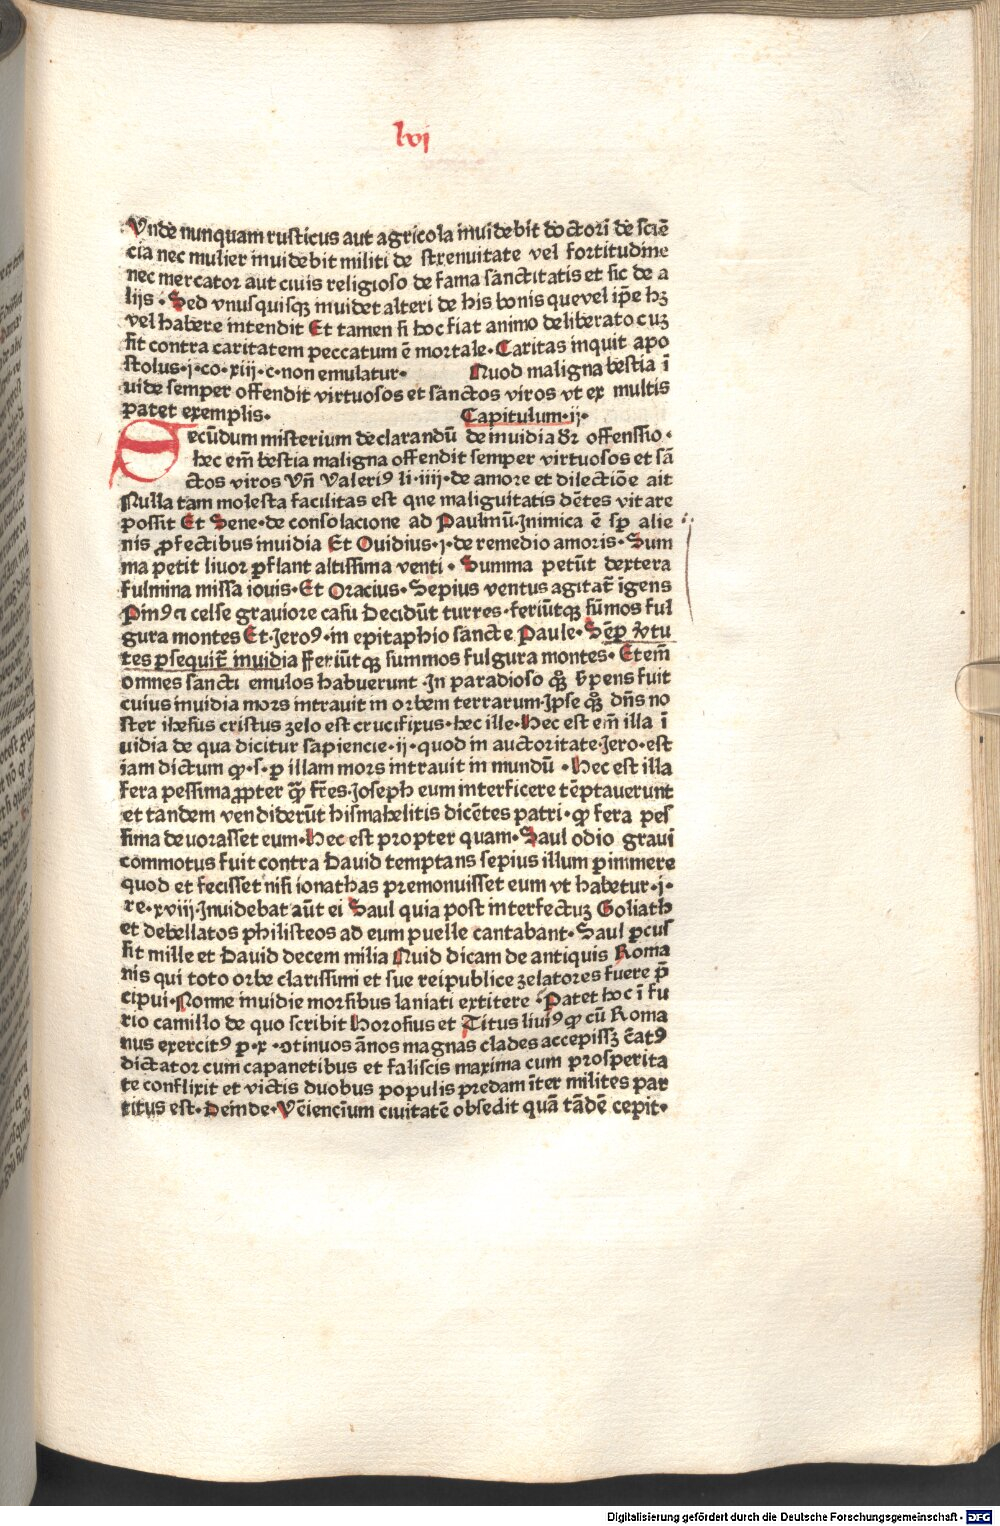 lvj
Vnde nunquam rusticus aut agricola inuidebit doctori de sciē
cia nec mulier inuidebit militi de strenuitate vel fortitudine
nec mercator aut ciuis religioso de fama sanctitatis et sic de a
lijs · Sed vnusquisqꝫ inuidet alteri de his bonis que vel ip̄e hꝫ
vel habere intendit Et tamen si hoc fiat animo deliberato cuꝫ
sit contra caritatem peccatum ē mortale · Caritas inquit apo
stolus · j · co · xiij · c · non emulatur · Quod maligna bestia ī
uide semper offendit virtuosos et sanctos viros vt ex multis
patet exemplis · Capitulum · ij ·
Secūdum misterium declarandū de inuidia dꝛ offensio ·
hec em̄ bestia maligna offendit semper virtuosos et sā
ctos viros Vn̄ Valeriꝰ li · iiij · de amore et dilectiōe ait
Nulla tam molesta facilitas est que maliguitatis dētes vitare
possit Et Sene · de consolacione ad Paulinū · Inimica ē sꝑ alie
nis ꝓfectibus inuidia Et Ouidius · j · de remedio amoris · Sum
ma petit liuor ꝑflant altissima venti · Summa petūt dextera
fulmina missa iouis · Et Oracius · Sepius ventus agitat̄ īgens
Pinꝰ ci celse grauiore casu Decidūt turres · feriūtqꝫ sūmos ful
gura montes Et · Jeroꝰ · in epitaphio sancte Paule · Sēꝑ v̄tu
tes ꝑsequit̄ inuidia fferiūtqꝫ summos fulgura montes · Etem̄
omnes sancti emulos habuerunt · In paradioso qꝫ̄ s̄pens fuit
cuius inuidia mors intrauit in orbem terrarum · Ipse qꝫ̄ dn̄s no
ster ihesus cristus zelo est crucifixus · hec ille · Hec est em̄ illa ī
uidia de qua dicitur sapiencie · ij · quod in auctoritate · Jero · est
iam dictum ꝙ · s · ꝑ illam mors intrauit in mundū · Hec est illa
fera pessima ꝓpter quā fr̄es · Joseph eum interficere tēptauerunt
et tandem vendiderūt hismahelitis dicētes patri · ꝙ fera pes
sima deuorasset eum · Hec est propter quam · Saul odio graui
commotus fuit contra Dauid temptans sepius illum ꝑimmere
quod et fecisset nisi ionathas premonuisset eum vt habetur · j ·
re · xviij · Inuidebat aūt ei Saul quia post interfectuꝫ Goliath
et debellatos philisteos ad eum puelle cantabant · Saul ꝑcus
sit mille et Dauid decem milia Quid dicam de antiquis Roma
nis qui toto orbe clarissimi et sue reipublice zelatores fuere p̄
cipui · Nonne inuidie morsibus laniati extitere · Patet hoc ī fu
rio camillo de quo scribit Horosius et Titus liuiꝰ ꝙ cū Roma
nus exercitꝰ ꝑ · x · ꝯtinuos ānos magnas clades accepissꝫ c̄atꝰ
dictator cum capanetibus et faliscis maxima cum prosperita
te conflixit et victis duobus populis predam īter milites par
titus est · Deinde · Vēiencīum ciuitatē obsedit quā tādē cepit ·
Digitalisierung gefördert durch die Deutsche Forschungsgemeinschaft - DFG